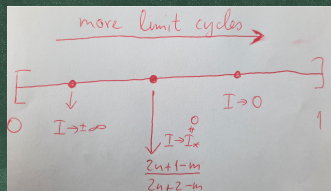 more limit cycles
0 I→±∞ I→I* I→0 1
0
2n+1-m
2n+2-m